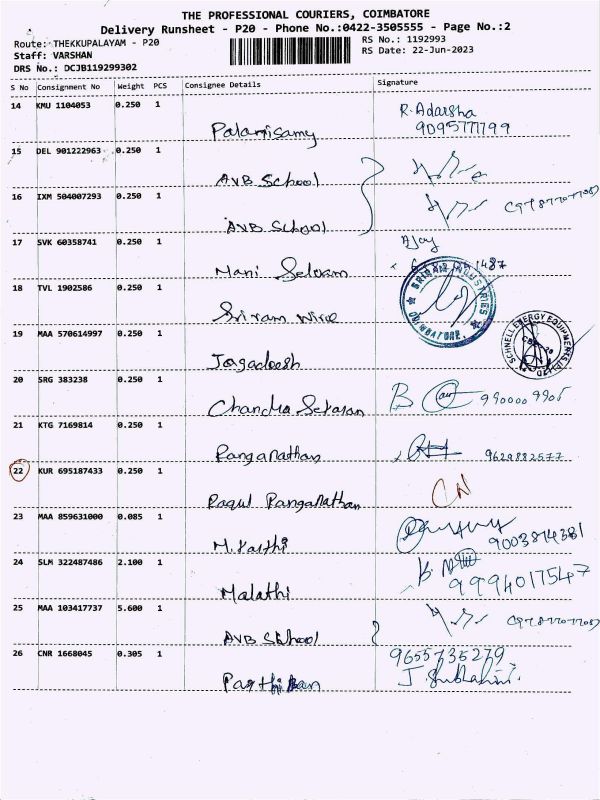 THE PROFESSIONAL COURIERS, COIMBATORE
Delivery Runsheet - P20 - Phone No.:0422-3505555 - Page No.:2
Route: THEKKUPALAYAM - P20
RS No.: 1192993
Staff: VARSHAN
RS Date: 22-Jun-2023
DRS No.: DCJB119299302
S No Consignment No Weight PCS Consignee Details Signature
14 KMU 1104053 0.250 1
R. Adarsha
Palanisamy
9095777799
15 DEL 901222963 0.250 1
AVB School
16 IXM 504007293 0.250 1
AVB School
17 SVK 60358741 0.250 1
Ajay
Mani Selvam
18 TVL 1902586 0.250 1
SRIRAM INDUSTRIES
COIMBATORE.
Sriram Wire
19 MAA 570614997 0.250 1
SCHNELL ENERGY EQUIPMENTS
Jagadeesh
20 SRG 383238 0.250 1
Chandra Sekaran
21 KTG 7169814 0.250 1
Ranganathan
9629882577
22 KUR 695187433 0.250 1
CN
Ragul Ranganathan
23 MAA 859631000 0.085 1
M. Karthi
9003814381
24 SLM 322487486 2.100 1
Malathi
9994017547
25 MAA 103417737 5.600 1
AVB School
26 CNR 1668045 0.305 1
9655735279
Parthiban